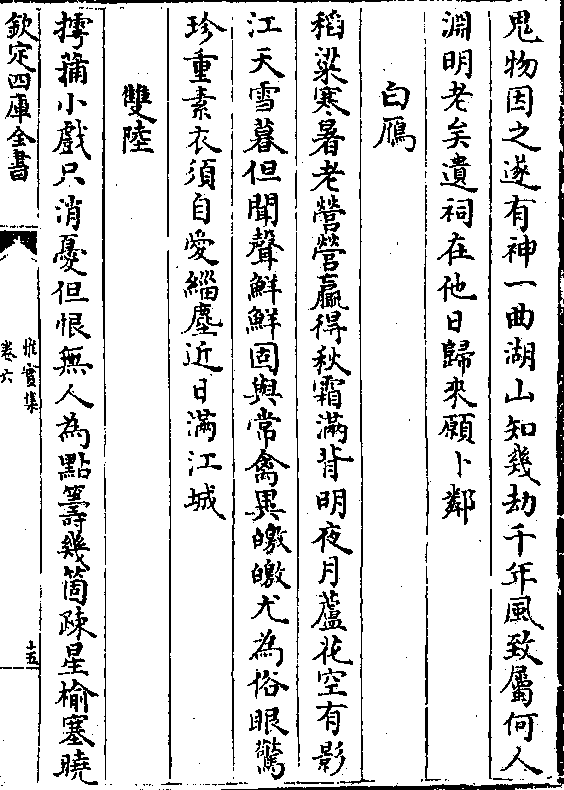 鬼物因之遂有神一曲湖山知幾劫千年風致屬何人
淵明老矣遺祠在他日歸來願卜鄰
白鴈
稻粱寒暑老營營贏得秋霜滿背明夜月蘆花空有影
江天雪暮但聞聲鮮鮮固與常禽異皦皦尤為俗眼驚
珍重素衣須自愛緇塵近日滿江城
雙陸
摴蒱小戲只消憂但恨無人為點籌幾箇疎星榆塞曉
欽定四庫全書
惟實集
卷六
十五